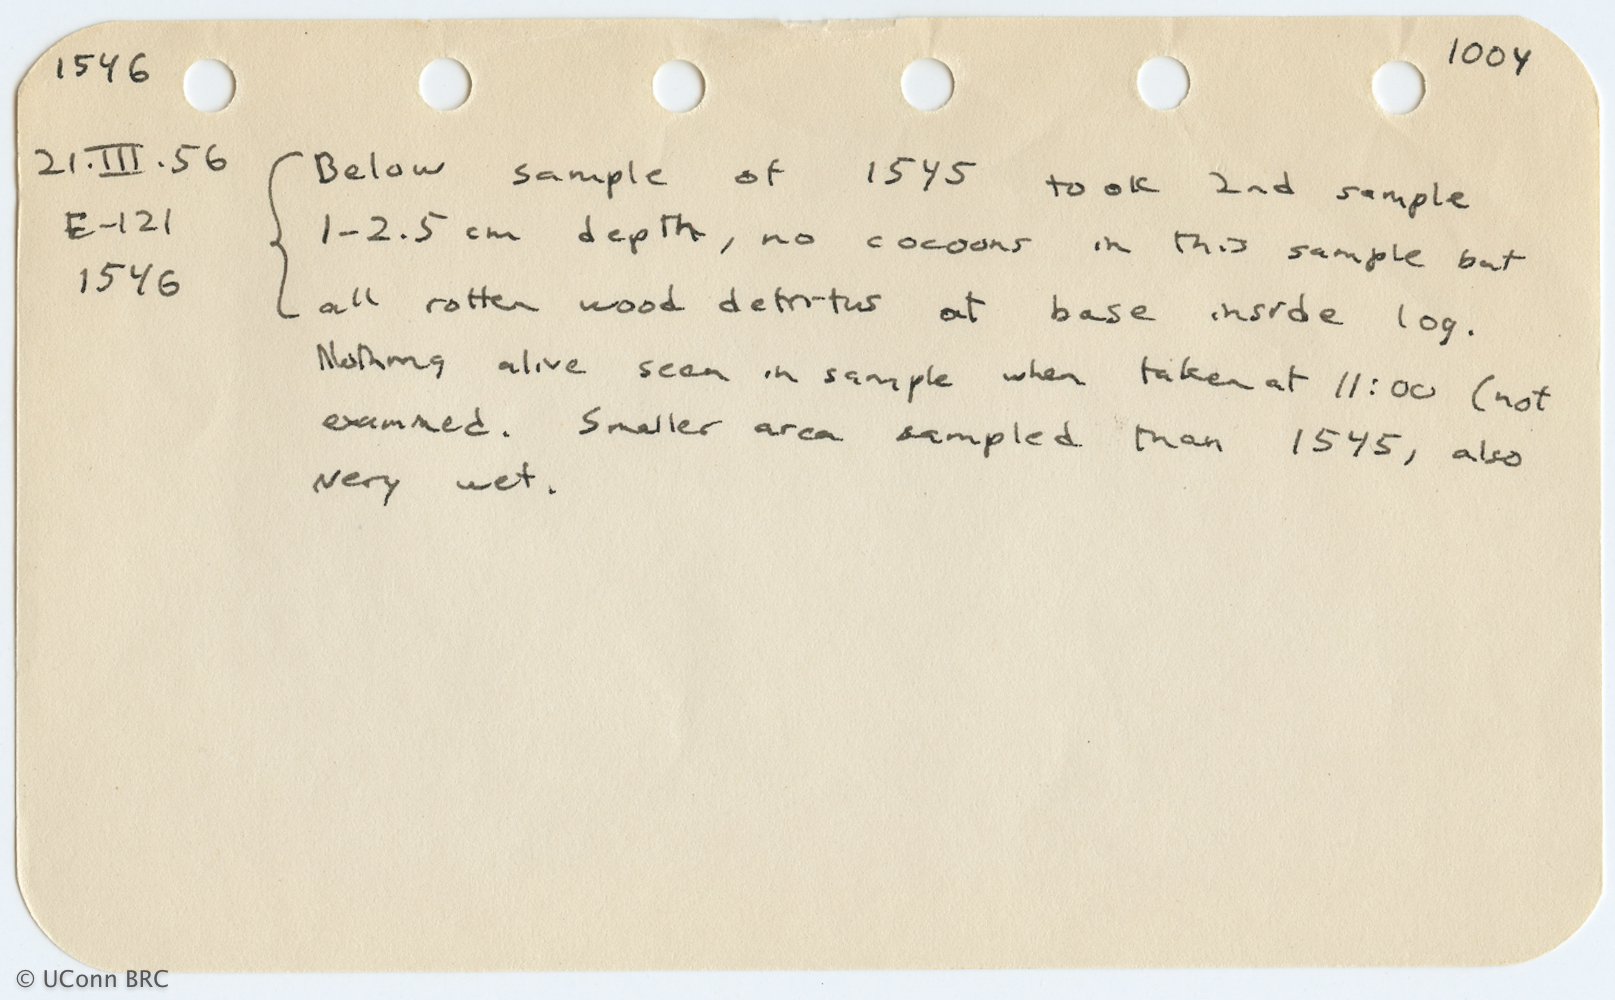 1546
1004
21.III.56
E-121
1546
Below sample of 1545 took 2nd sample
1-2.5 cm depth, no cocoons in this sample but
all rotten wood detritus at base inside log.
Nothing alive seen in sample when taken at 11:00 (not
examined. Smaller area sampled than 1545, also
very wet.
© UConn BRC